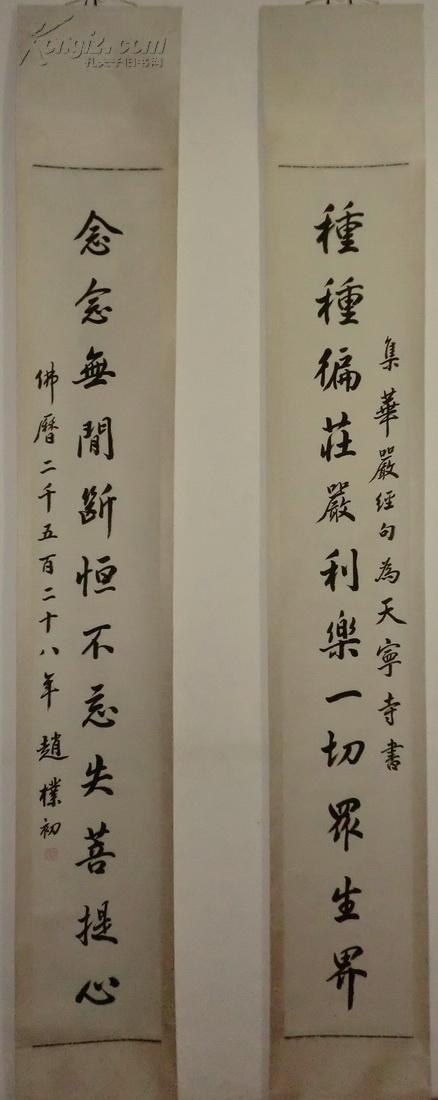 種種徧莊嚴利樂一切眾生界
集華嚴經句為天寧寺書
念念無間斷恒不忘失菩提心
佛曆二千五百二十八年 趙樸初
Kongfz.com
孔夫子旧书网